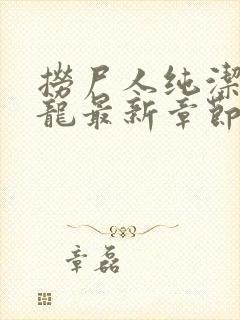 撈尸人纯潔
龍最新章節
章磊